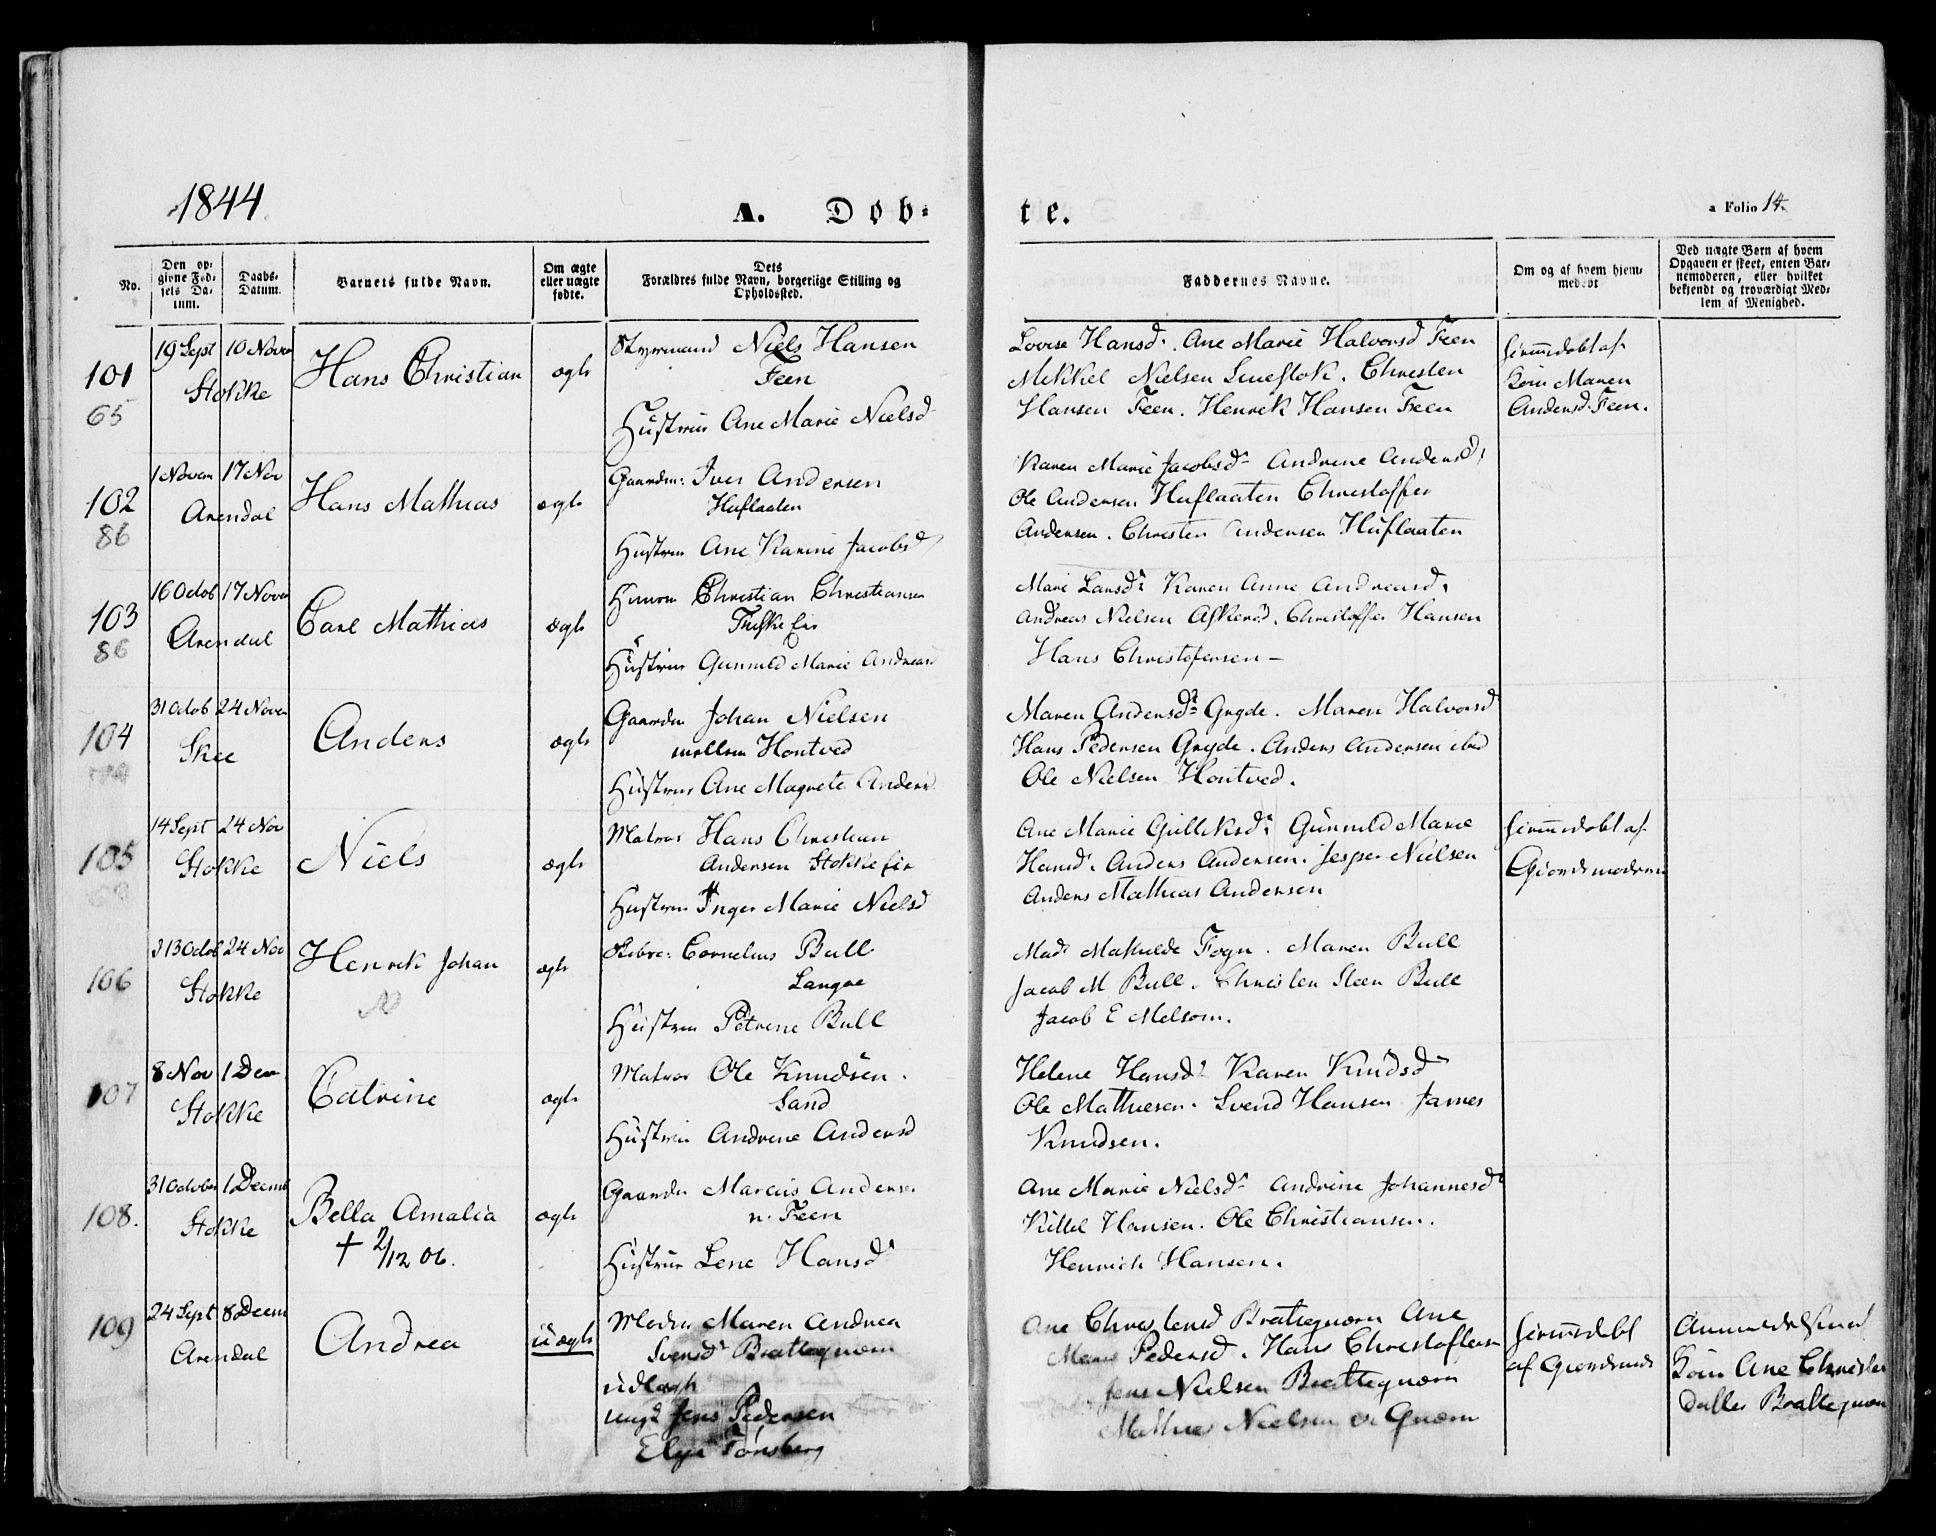 1844
A. Døb-
te.
a Folio 14.
No.
Den op-
givne Fød-
sels Da-
tum.
Daabs-
Datum.
Barnets fulde Navn.
Om ægte
eller uægte
fødte.
Dets
Forældres fulde Navn, borgerlige Stilling og
Opholdssted.
Faddernes Navne.
Om og af hvem hjem-
medøbt
Ved uægte Børn af hvem
Opgaven er skeet, enten Bar-
nemoderen, eller hvilket
bekjendt og troværdigt Med-
lem af Menighed.
101
65
19 Sept 10 Novr
Stokke
Hans Christian
ægte
Styrmand Niels Hansen
Feen
Hustrue Ane Marie Nielsd
Lovise Hansd. Ane Marie Halvorsd Feen
Mikkel Nielsen Christen
Hansen Feen. Henrik Hansen Feen
hiemmedøbt af
Kone Maren
Andersd. Feen.
102
86
1 Novem 17 Nov
Arendal
Hans Mathias
ægte
Gaardm: Iver Andersen
Huflaaten
Hustrue Ane Karine Jacobsd
Karen Marie Jacobsd Andrine Andersd
Ole Andersen Huflaaten Christoffer
Andersen. Christen Andersen Huflaaten
103
86
16 Octob 17 Novem
Arendal
Carl Mathias
ægte
Christian Christiansen
Hustrue Gunnild Marie Andreasd
Mari Larsd Karen Anne Andreasd.
Andreas Nielsen Askerød. Christoffer Hansen
Hans Christofersen -
104
31 Octob 24 Novem
Skee
Anders
ægte
Gaardm Johan Nielsen
mellem Hontved
Hustrue Ane Magrete Anders
Maren Andersd Gryde. Maren Halvorsd
Hans Pedersen Gryde. Anders Andersen ibid
Ole Nielsen Hontved.
105
14 Sept 24 Nov
Stokke
Niels
ægte
Matros Hans Christian
Andersen Stokke Eie
Hustrue Inger Marie Nielsd
Ane Marie Gulliksd Gunnild Marie
Hansd. Anders Andersen. Jesper Nielsen
Anders Mathias Andersen
hiemmedøbt af
Giordemoderen
106
31 Octob 24 Nov
Stokke
Henrik Johan
ægte
Skibre: Cornelius Bull
Langøe
Hustrue Petrine Bull
Mad Mathilde Fogn. Maren Bull
Jacob M Bull. Christen Steen Bull
Jacob E Melsom.
107
8 Nov 1 Dec
Stokke
Catrine
ægte
Matros Ole Knudsen.
Sand
Hustrue Andrine Andersd
Helene Hansd Karen Knudsd
Ole Mathiesen. Svend Hansen James
Knudsen.
108.
31 October 1 Decemb
Stokke
Bella Amalia
† 2/12 06.
ægte
Gaardm Marcus Andersen
n. Feen
Hustrue Lene Hansd
Ane Marie Nielsd Andrine Johannesd
Kittel Hansen. Ole Christiansen.
Henrich Hansen.
109
24 Sept 8 Decem
Arendal
Andrea
uægte
Moder Maren Andrea
Svensd Brattegnom
udlagt
ungk Jens Pedersen
Tønsberg
Ane Christensd Brattegnom Ane
Marie Pedersd. Hans Christoffersen
Jens Nielsen Brattegnom
Mathias Nielsen
hiemmedøbt
af
Kone Ane Christen
datter Brattegnom